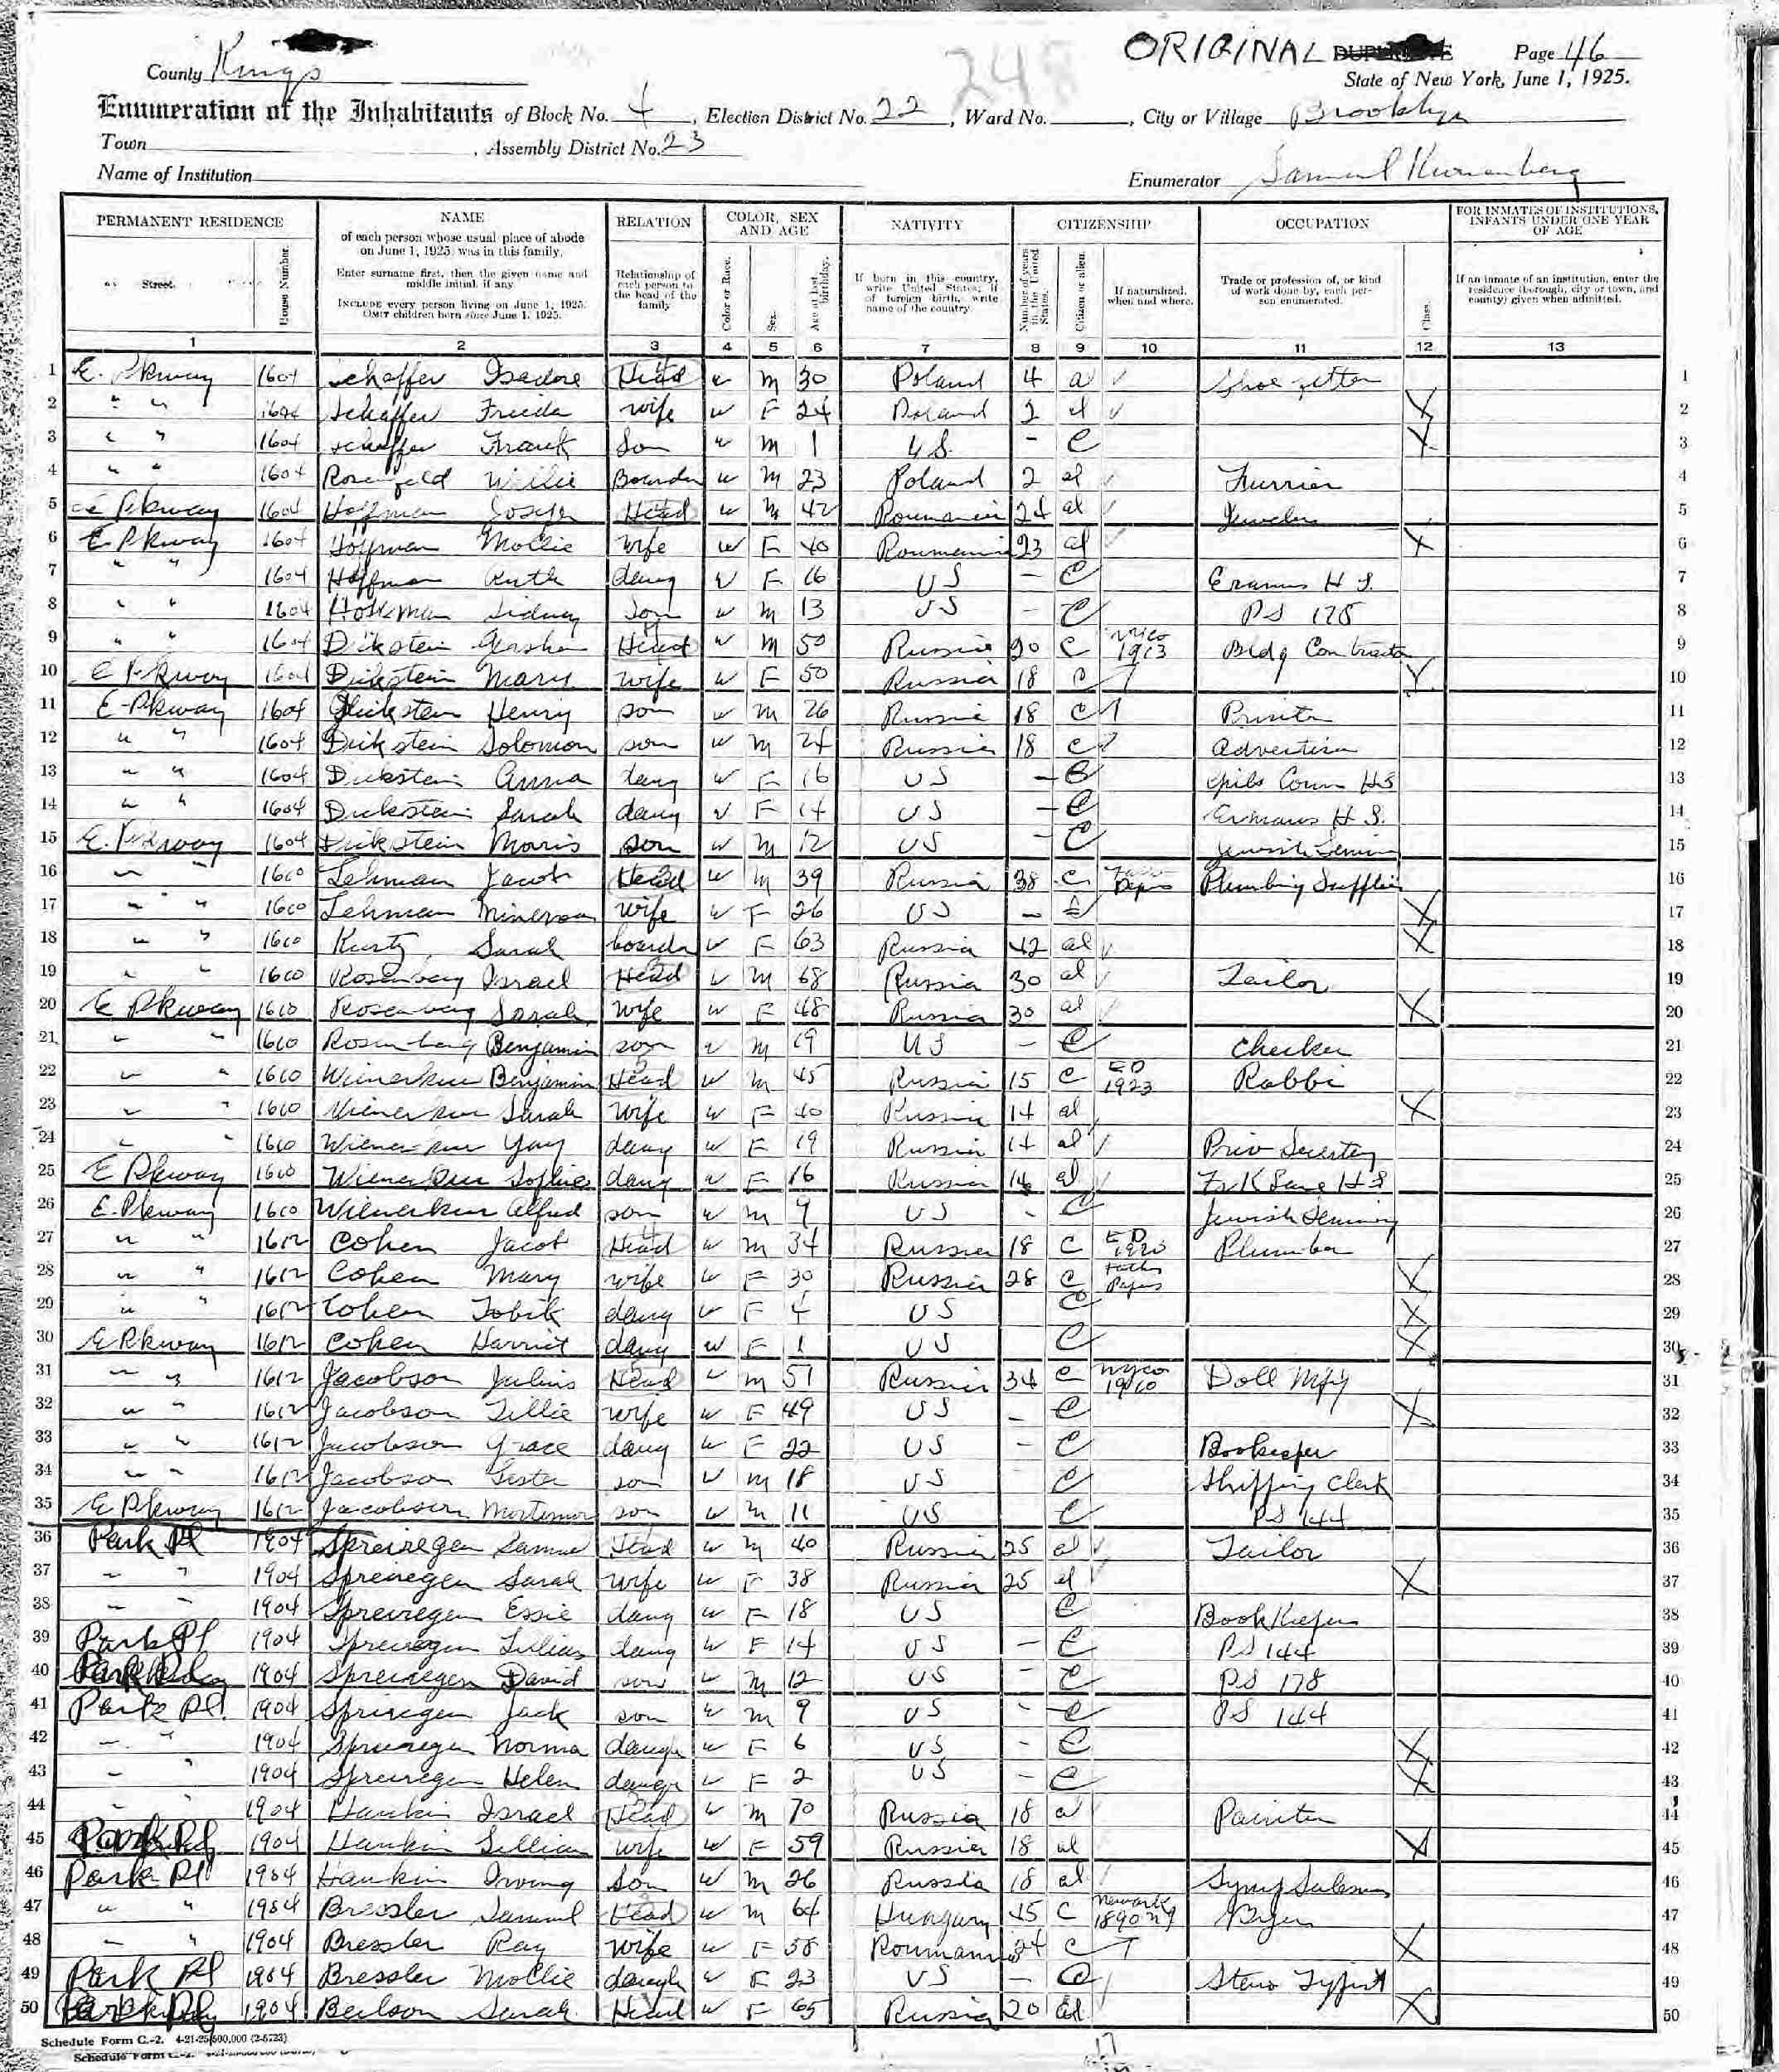 County Kings
ORIGINAL
Page 46
State of New York, June 1, 1925.
Enumeration of the Inhabitants of Block No. 4, Election District No. 22, Ward No. , City or Village Brooklyn
Town , Assembly District No. 23
Name of Institution
Enumerator Samuel
PERMANENT RESIDENCE NAME RELATION COLOR, SEX AND AGE NATIVITY CITIZENSHIP OCCUPATION FOR INMATES OF INSTITUTIONS, INFANTS UNDER ONE YEAR OF AGE
Street. House Number. of each person whose usual place of abode on June 1, 1925, was in this family. Enter surname first, then the given name and middle initial, if any. INCLUDE every person living on June 1, 1925. OMIT children born since June 1, 1925. Relationship of each person to the head of the family Color or Race. Sex. Age at last birthday. If born in this country, write United States; if of foreign birth, write name of the country Number of years in the United States. Citizen or alien. If naturalized, when and where. Trade or profession of, or kind of work done by, each person enumerated. Class. If an inmate of an institution, enter the residence (borough, city or town, and county) given when admitted.
1 2 3 4 5 6 7 8 9 10 11 12 13
1 E. Pkway 1604 Schaffer Isadore Head w m 30 Poland 4 a 1
2 " " 1604 Schaffer Frieda wife w F 24 Poland 2 al X 2
3 " " 1604 Schaffer Frank Son w m 1 U S. - C X 3
4 " " 1604 Rosenfeld Willie Boarder w M 23 Poland 2 al Furrier 4
5 E Pkway 1604 Hoffman Joseph Head w m 42 Roumania 24 al Jeweler 5
6 E Pkway 1604 Hoffman Mollie wife w F 40 Roumania 23 al X 6
7 " " 1604 Hoffman Ruth daug w F 16 US - C Erasmus H S. 7
8 " " 1604 Hoffman Sidney Son w m 13 US - C PS 178 8
9 " " 1604 Dickstein Head w m 50 Russia 20 C 1913 Bldg Contractor 9
10 E Pkway 1604 Dickstein Mary wife w F 50 Russia 18 C X 10
11 E Pkway 1604 Dickstein Henry son w m 26 Russia 18 C Printer 11
12 " " 1604 Dickstein Solomon son w m 24 Russia 18 C 12
13 " " 1604 Dickstein Anna daug w F 16 US - C Girls Com HS 13
14 " " 1604 Dickstein Sarah daug w F 14 US - C H S. 14
15 E. Pkway 1604 Dickstein Moris son w m 12 US - C Jewish 15
16 " " 1610 Lehman Jacob Head w m 39 Russia 38 C Plumbing Supplies 16
17 " " 1610 Lehman Minerva wife w F 26 US - C X 17
18 " " 1610 Kurtz, Sarah boarder w F 63 Russia 42 al X 18
19 " " 1610 Rosenberg Israel Head w m 68 Russia 30 al Tailor 19
20 E Pkway 1610 Rosenberg Sarah wife w F 48 Russia 30 al X 20
21 " " 1610 Rosenberg Benjamin son w m 19 US - C Checker 21
22 " " 1610 Benjamin Head w m 45 Russia 15 C ED 1923 Rabbi 22
23 " " 1610 Sarah wife w F 40 Russia 14 al X 23
24 " " 1610 daug w F 19 Russia 14 al 24
25 E Pkway 1610 Sophie daug w F 16 Russia 14 al Fr K Lane H S 25
26 E. Pkway 1610 Alfred son w m 9 US - C Jewish 26
27 " " 1612 Cohen Jacob Head w m 34 Russia 18 C ED Plumber 27
28 " " 1612 Cohen Mary wife w F 30 Russia 28 C Father Papers X 28
29 " " 1612 Cohen daug w F 4 US C X 29
30 E Pkway 1612 Cohen Harriet daug w F 1 US C X 30
31 " " 1612 Jacobson Julius Head w m 51 Russia 34 C nyco 1910 Doll Mfg 31
32 " " 1612 Jacobson Tillie wife w F 49 US - C X 32
33 " " 1612 Jacobson Grace daug w F 22 US - C Bookeeper 33
34 " " 1612 Jacobson Lester son w m 18 US C Shipping Clerk 34
35 E Pkway 1612 Jacobson Mortimer son w m 11 US C PS 144 35
36 Park Pl 1904 Spreiregen Samuel Head w m 40 Russia 25 al Tailor 36
37 " " 1904 Spreiregen Sarah wife w F 38 Russia 25 al X 37
38 " " 1904 Spreiregen Essie daug w F 18 US C BookKeeper 38
39 Park Pl 1904 Spreiregen Lillian daug w F 14 US - C PS 144 39
40 1904 Spreiregen David son w m 12 US - C PS 178 40
41 Park Pl. 1904 Spreiregen Jack son w m 9 US - C PS 144 41
42 " " 1904 Spreiregen Norma daugh w F 6 US - C X 42
43 " " 1904 Spreiregen Helen daugh w F 2 US - C X 43
44 " " 1904 Hankin Israel Head w m 70 Russia 18 al Painter 44
45 Park Pl 1904 Hankin Lillian wife w F 59 Russia 18 al X 45
46 Park Pl 1904 Hankin Irving Son w m 26 Russia 18 al 46
47 " " 1904 Bressler Samuel Head w m 64 Hungary 45 C Newark 1890 Buyer 47
48 " " 1904 Bressler Ray wife w F 58 Roumania 24 C X 48
49 Park Pl 1904 Bressler Mollie daugh w F 23 US - C Steno Typist 49
50 Park Pl 1904 Beilson Sarah Head w F 65 Russia 20 al X 50
Schedule Form C.-2. 4-21-25-500,000 (2-6723)